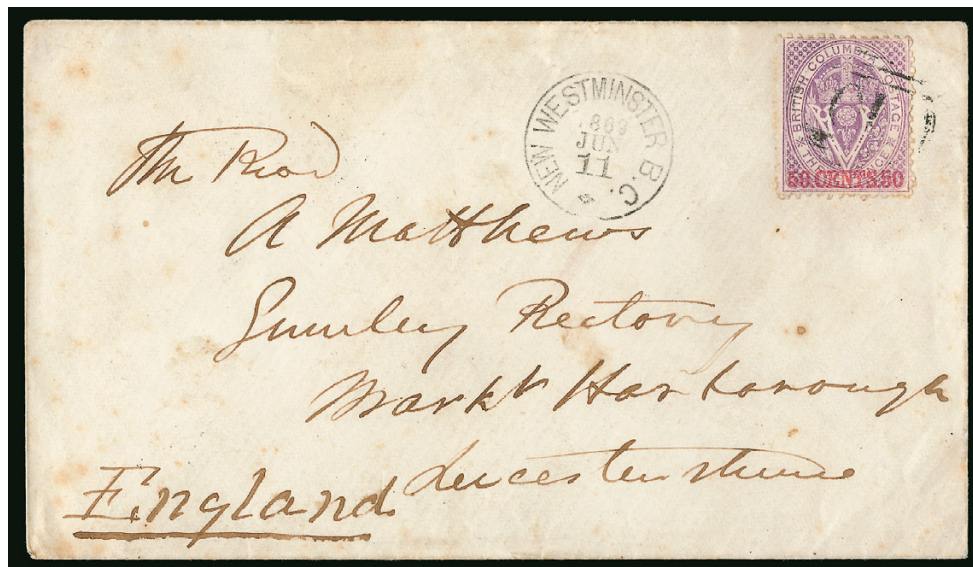 NEW WESTMINSTER B.C.
1869
JUN
11
BRITISH COLUMBIA POSTAGE
50.CENTS.50
The Revd
A Matthews
Gumley Rectory
Markt Harborough
Leicestershire
England